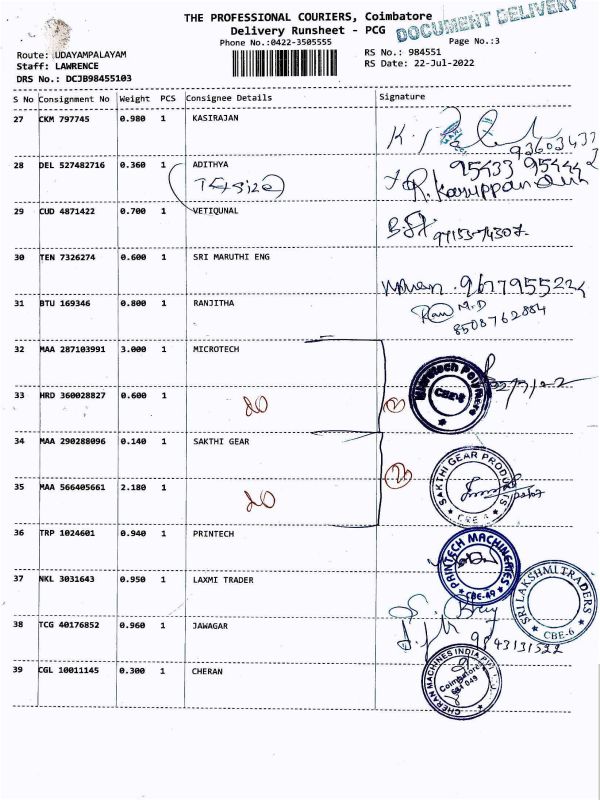 THE PROFESSIONAL COURIERS, Coimbatore
DOCUMENT DELIVERY
Delivery Runsheet - PCG
Phone No.:0422-3505555
Page No.:3
Route: UDAYAMPALAYAM
RS No.: 984551
Staff: LAWRENCE
RS Date: 22-Jul-2022
DRS No.: DCJB98455103
S No Consignment No Weight PCS Consignee Details Signature
27 CKM 797745 0.980 1 KASIRAJAN
28 DEL 527482716 0.360 1 ADITHYA
R. Karuppan
29 CUD 4871422 0.700 1 VETIQUNAL
30 TEN 7326274 0.600 1 SRI MARUTHI ENG
9677955224
31 BTU 169346 0.800 1 RANJITHA
M.D
8508762884
32 MAA 287103991 3.000 1 MICROTECH
Microtech Polymers CBE-8
33 HRD 360028827 0.600 1
34 MAA 290288096 0.140 1 SAKTHI GEAR
SAKTHI GEAR PRODUCTS
35 MAA 566405661 2.180 1
36 TRP 1024601 0.940 1 PRINTECH
PRINTECH MACHINERIES CBE-49
37 NKL 3031643 0.950 1 LAXMI TRADER
SRI LAKSHMI TRADERS CBE-6
38 TCG 40176852 0.960 1 JAWAGAR
9843131522
39 CGL 10011145 0.300 1 CHERAN
CHERAN MACHINES INDIA PVT. LTD. Coimbatore 641 049